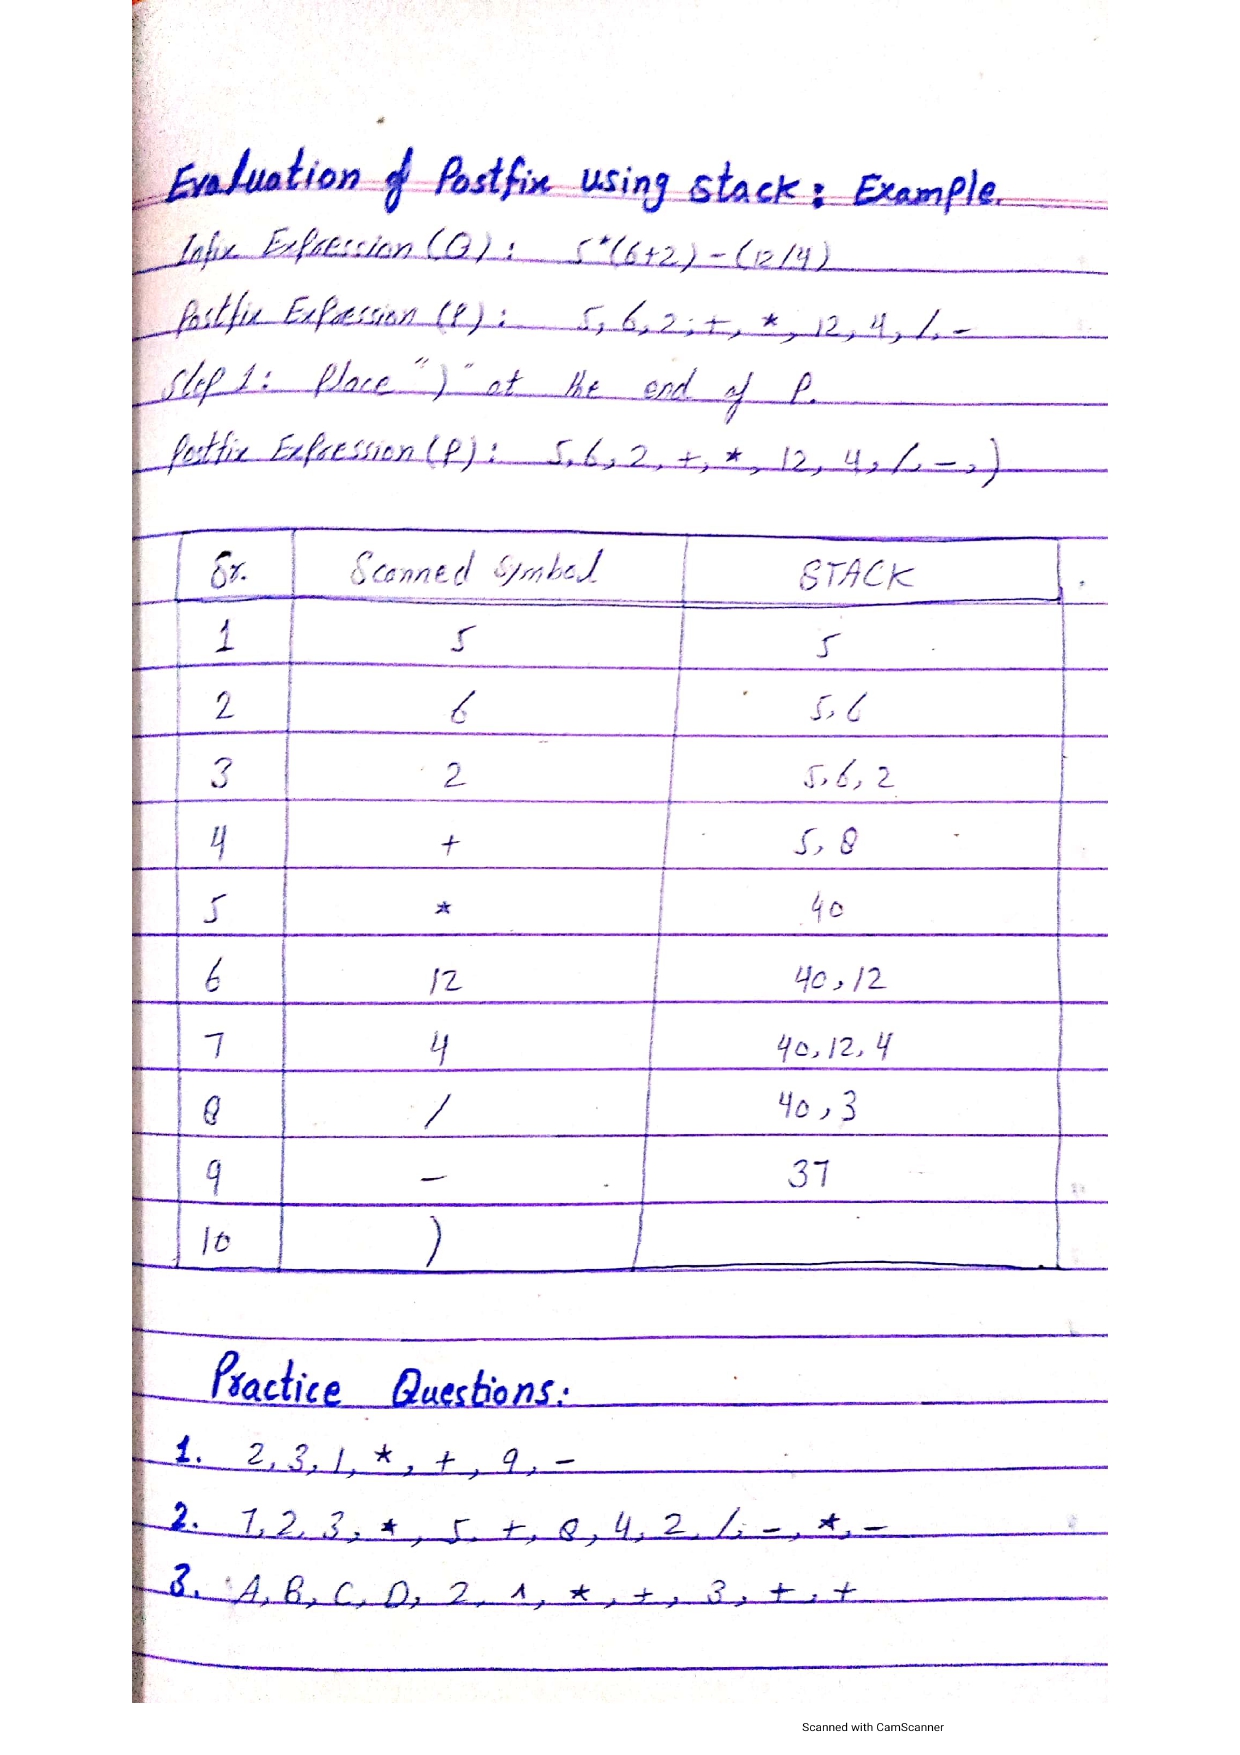 Evaluation of Postfix using stack: Example.
Infix Expression (Q): 5*(6+2)-(12/4)
Postfix Expression (P): 5, 6, 2, +, *, 12, 4, /, -
Step 1: Place ")" at the end of P.
Postfix Expression (P): 5, 6, 2, +, *, 12, 4, /, -, )
Sr. Scanned Symbol STACK
1 5 5
2 6 5, 6
3 2 5, 6, 2
4 + 5, 8
5 * 40
6 12 40, 12
7 4 40, 12, 4
8 / 40, 3
9 - 37
10 )
Practice Questions:
1. 2, 3, 1, *, +, 9, -
2. 7, 2, 3, *, 5, +, 8, 4, 2, /, -, *, -
3. A, B, C, D, 2, ^, *, +, 3, +, +
Scanned with CamScanner